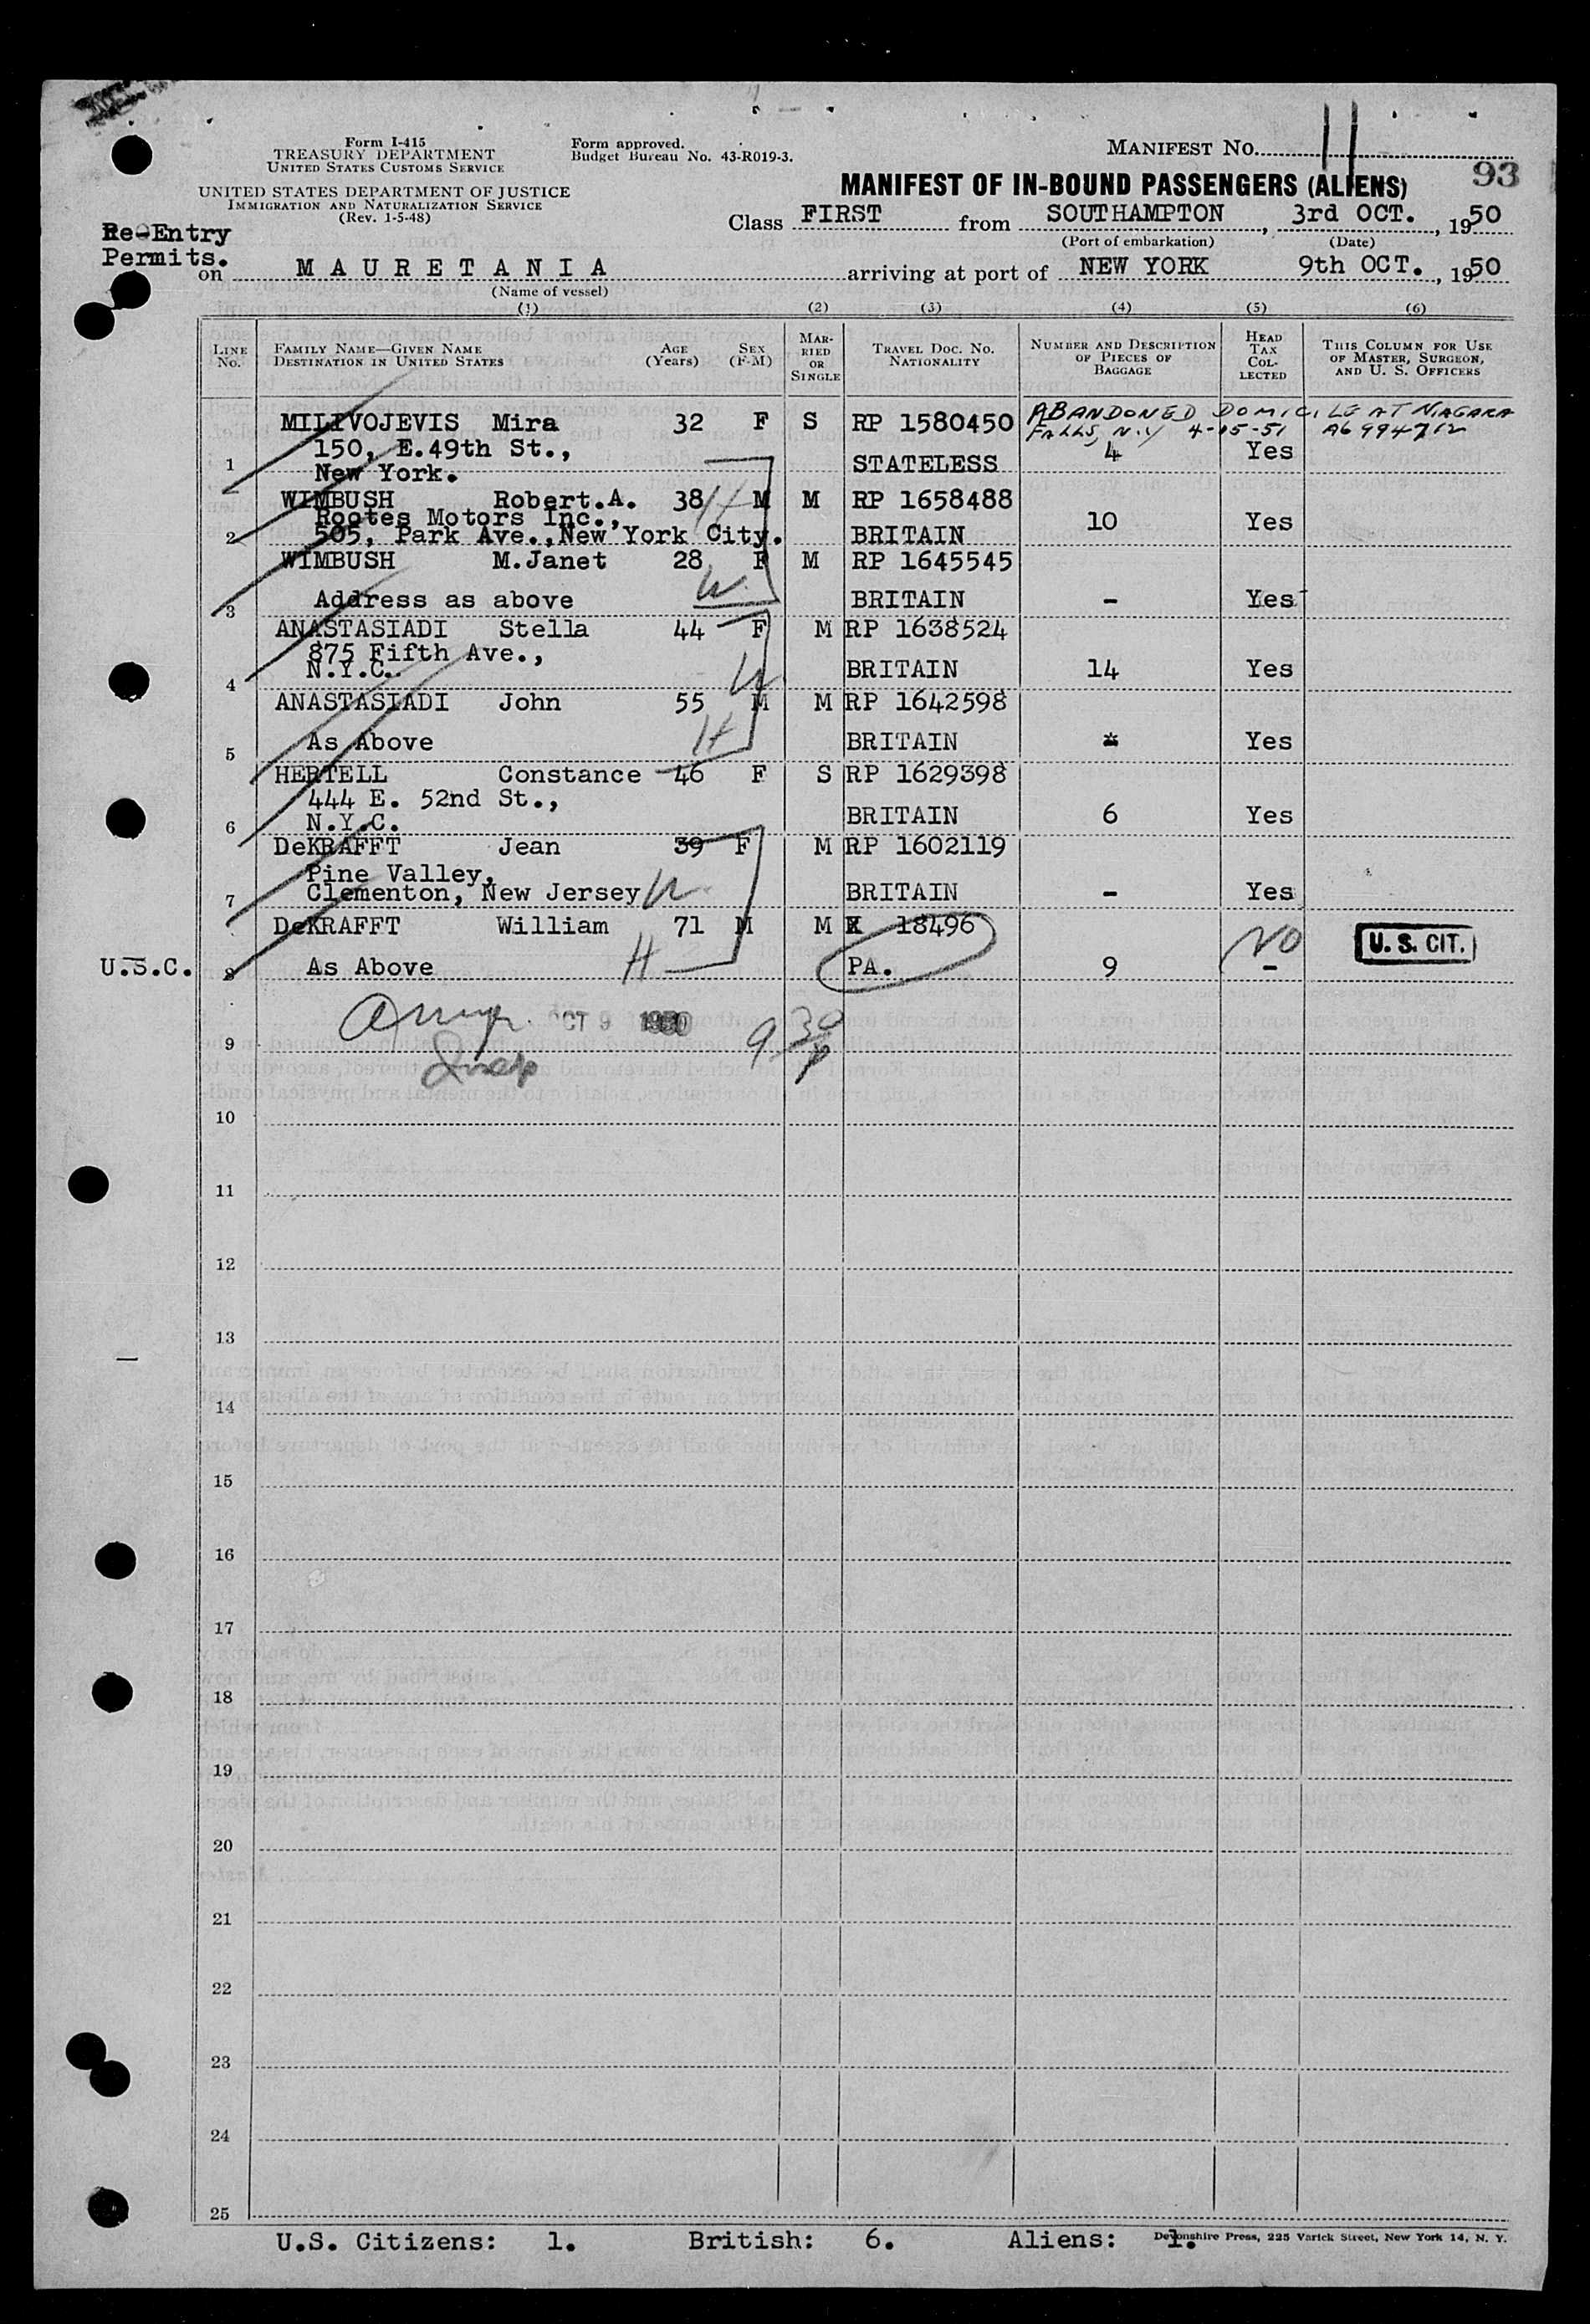 Form I-415
TREASURY DEPARTMENT
UNITED STATES CUSTOMS SERVICE
UNITED STATES DEPARTMENT OF JUSTICE
IMMIGRATION AND NATURALIZATION SERVICE
(Rev. 1-5-48)
Form approved.
Budget Bureau No. 43-R019-3.
MANIFEST No. 11
93
MANIFEST OF IN-BOUND PASSENGERS (ALIENS)
Class FIRST from SOUTHAMPTON, 3rd OCT., 1950
(Port of embarkation) (Date)
Re-Entry
Permits.
on MAURETANIA arriving at port of NEW YORK 9th OCT., 1950
(Name of vessel)
(1) (2) (3) (4) (5) (6)
LINE No. FAMILY NAME—GIVEN NAME DESTINATION IN UNITED STATES AGE (Years) SEX (F-M) MARRIED OR SINGLE TRAVEL DOC. NO. NATIONALITY NUMBER AND DESCRIPTION OF PIECES OF BAGGAGE HEAD TAX COLLECTED THIS COLUMN FOR USE OF MASTER, SURGEON, AND U. S. OFFICERS
MILIVOJEVIS Mira 32 F S RP 1580450 ABANDONED DOMICILE AT NIAGARA
FALLS, N.Y 4-15-51 A6 994712
150, E.49th St.,
1 New York. STATELESS 4 Yes
WIMBUSH Robert.A. 38 H M M RP 1658488
Rootes Motors Inc.,
2 505, Park Ave.,New York City. BRITAIN 10 Yes
WIMBUSH M.Janet 28 F M RP 1645545
3 Address as above W. BRITAIN - Yes
ANASTASIADI Stella 44 F M RP 1638524
875 Fifth Ave.,
4 N.Y.C. W BRITAIN 14 Yes
ANASTASIADI John 55 M M RP 1642598
5 As Above H BRITAIN Yes
HERTELL Constance 46 F S RP 1629398
444 E. 52nd St.,
6 N.Y.C. BRITAIN 6 Yes
DeKRAFFT Jean 39 F M RP 1602119
Pine Valley,
7 Clementon, New Jersey W. BRITAIN - Yes
DeKRAFFT William 71 M M 18496 NO U. S. CIT.
U.S.C. 8 As Above H PA. 9 -
OCT 9 1950 9 30 p
9
10
11
12
13
14
15
16
17
18
19
20
21
22
23
24
25
U.S. Citizens: 1. British: 6. Aliens: 1.
Devonshire Press, 225 Varick Street, New York 14, N. Y.